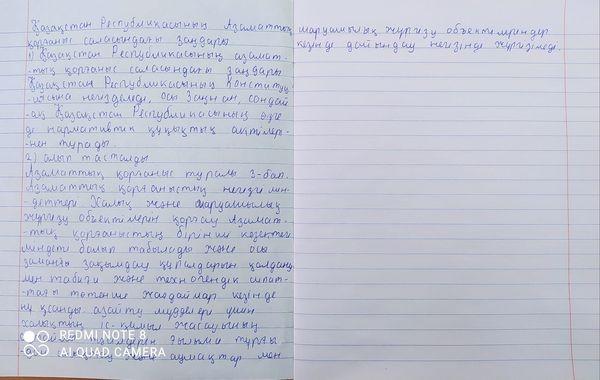 Қазақстан Республикасының Азаматтық
қорғаныс саласындағы заңдары
1) Қазақстан Республикасының азамат-
-тық қорғаныс саласындағы заңдары
Қазақстан Республикасының Конституц-
-иясына негізделеді, осы Заңнан, сондай
-ақ Қазақстан Республикасының өзге
де нормативтік құқықтық актілері-
-нен тұрады.
2) алып тасталды
Азаматтық қорғаныс туралы 3-бап.
Азаматтық қорғаныстың негізгі мін-
-деттері Халық және шаруашылық
жүргізу объектілерін қорғау Азамат-
-тық қорғаныстың бірінші кезектегі
міндеті болып табылады және осы
заманғы зақымдау құралдарын қолдану
мен табиғи және техногендік сипат-
-тағы төтенше жағдайлар кезінде
азайту мүдделері үшін
халықтың іс-қимыл жасауының
ғылыми тұрғы
аумақтар мен
шаруашылық жүргізу объектілерінде
кезінде дайындау негізінде жүргізіледі.
REDMI NOTE 8
AI QUAD CAMERA